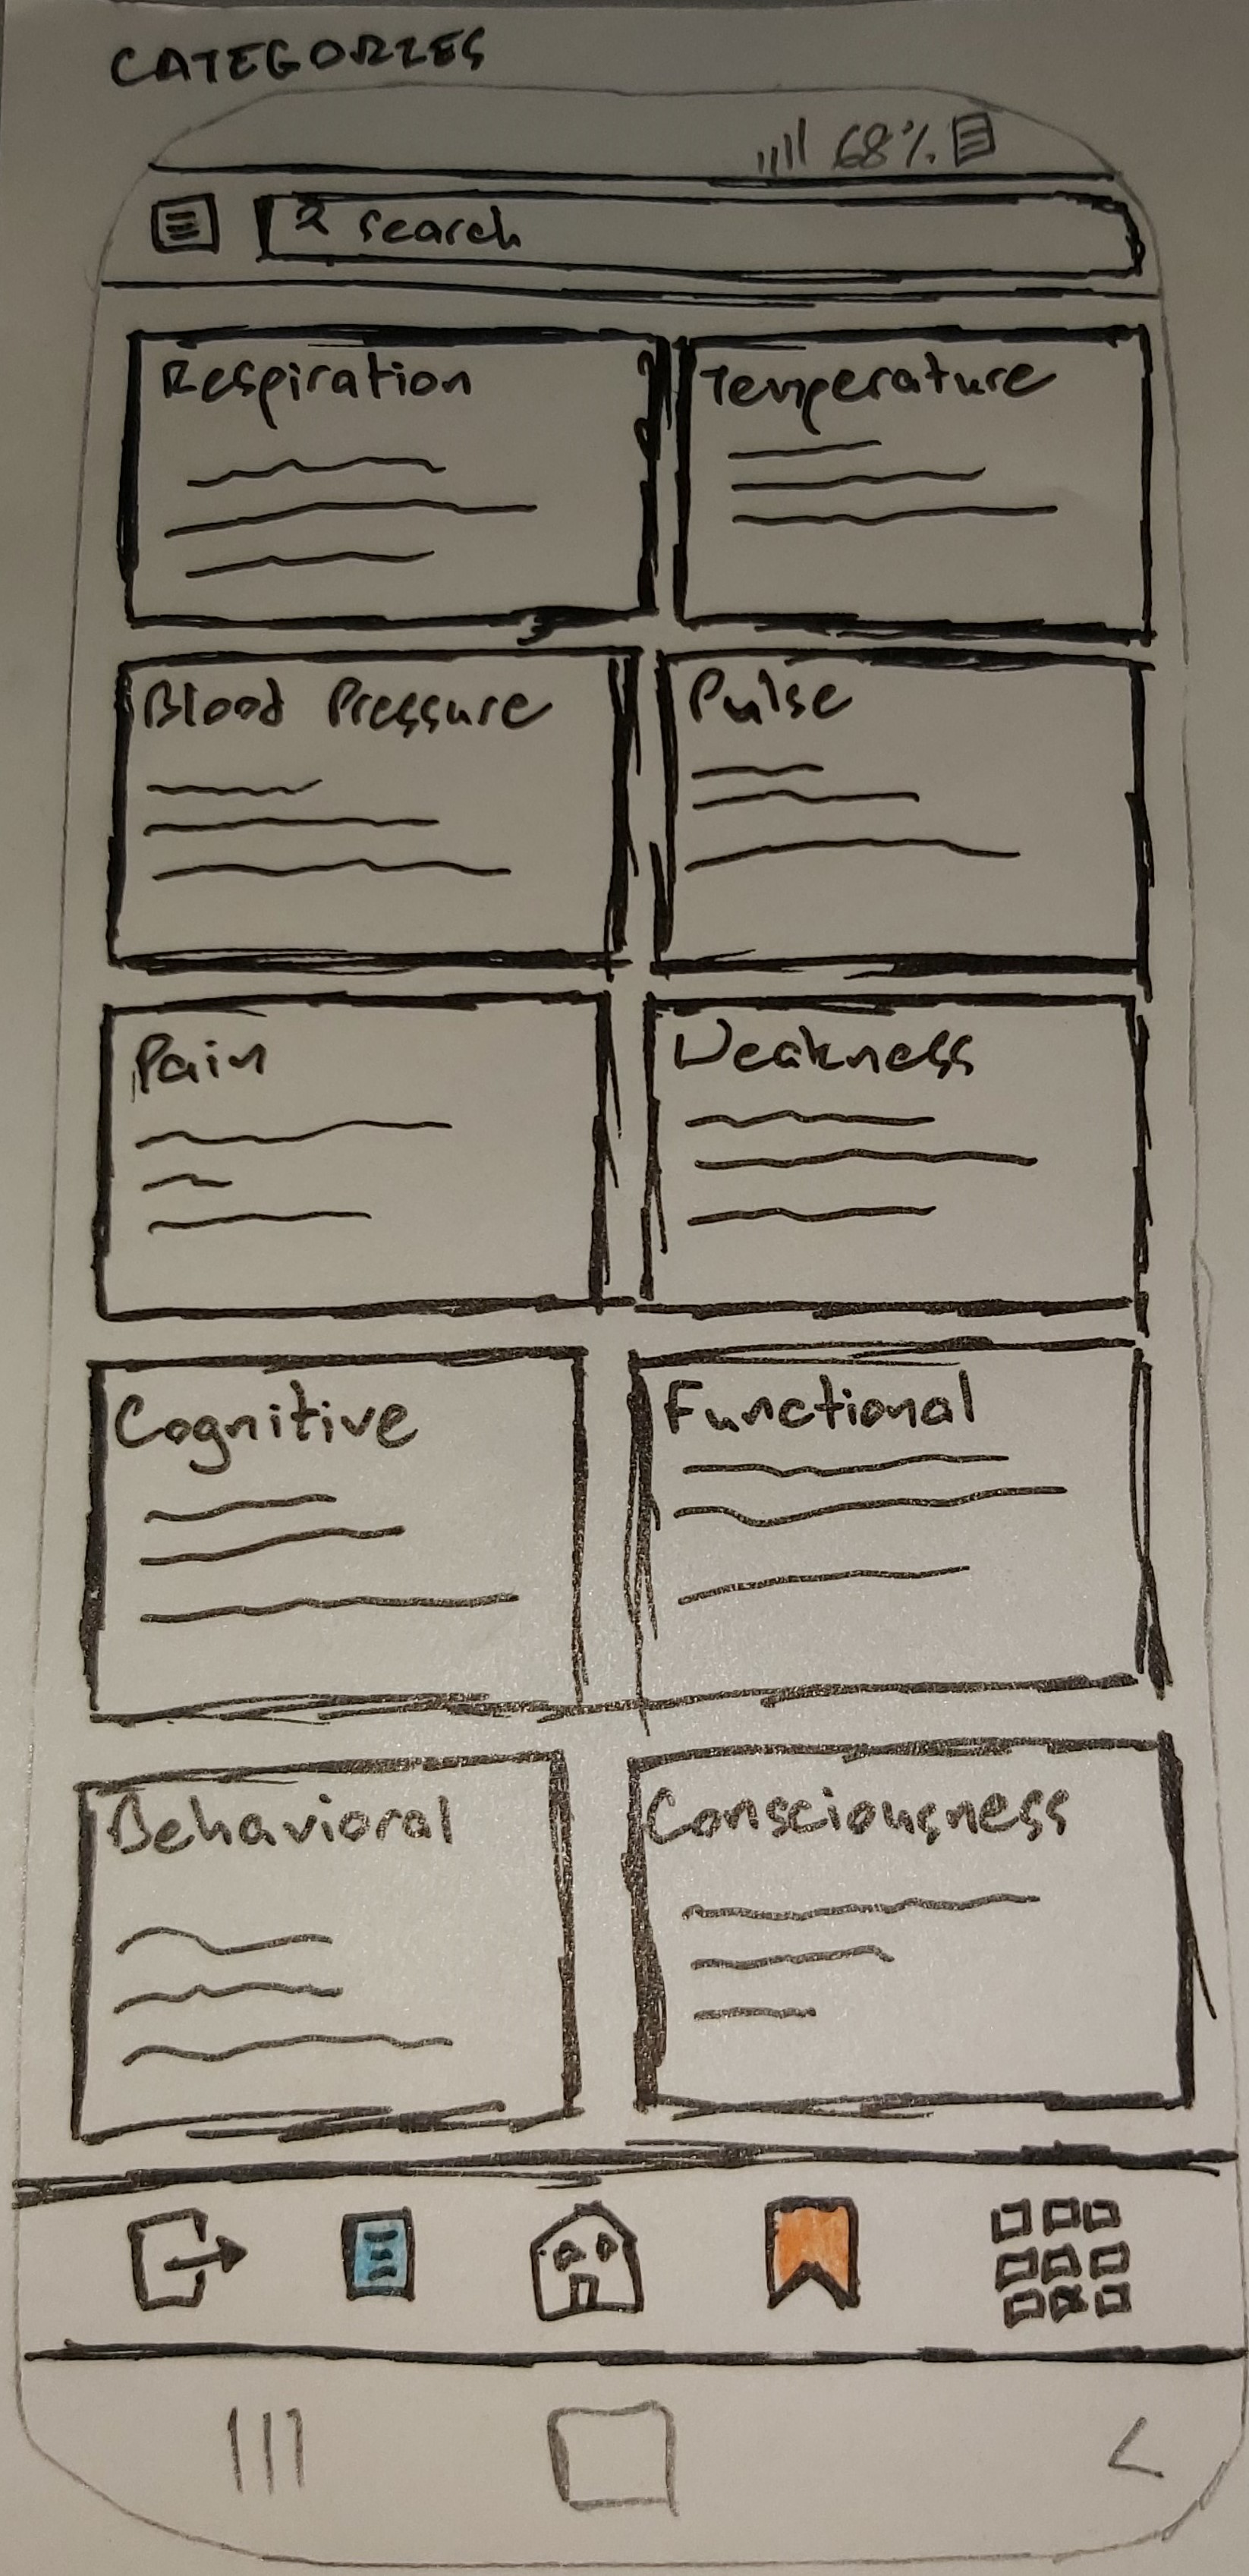 CATEGORIES
68%
search
Respiration
Temperature
Blood Pressure
Pulse
Pain
Weakness
Cognitive
Functional
Behavioral
Consciousness